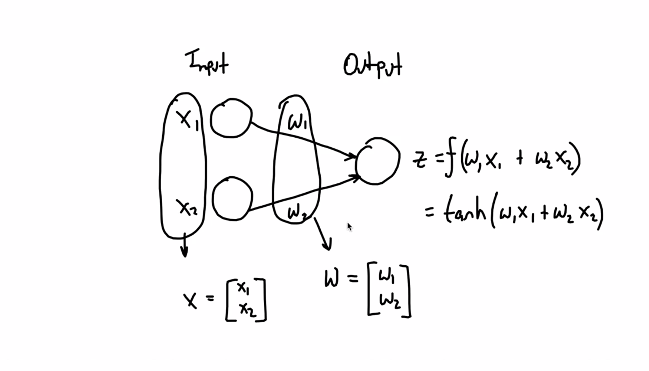 Input
Output
x₁
w₁
z = f(w₁x₁ + w₂x₂)
x₂
w₂
= tanh(w₁x₁ + w₂x₂)
x = [x₁
x₂]
w = [w₁
w₂]